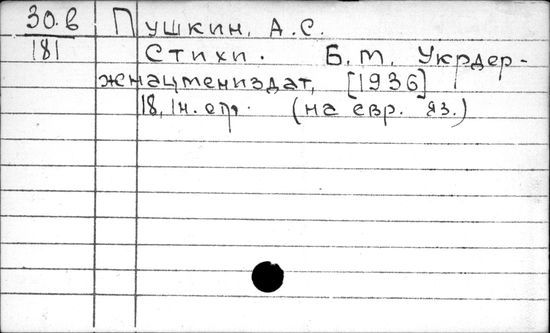 30.в Пушкин, А.С.
181 Стихи. Б.М. Укрдер-
жнацмениздат, [1936]
18, 1н. стр. (на евр. яз.)